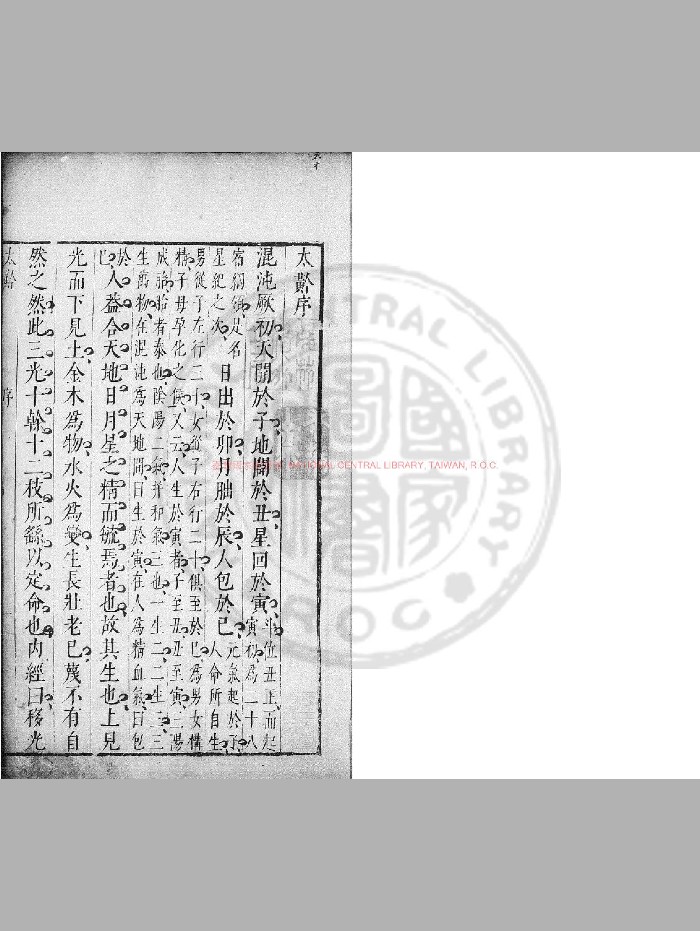 太齡序
混沌厥初天開於子地闢於丑星回於寅斗位丑正而起寅初為二十八
宿綱領是名星紀之次日出於卯月朏於辰人包於巳元氣起於子人命所自生
男從子左行三十女從子右行二十俱至於巳為男女構
精子母孕化之候又云人生於寅者子至丑丑至寅三陽
成
者泰也陰陽二氣并和氣三也一生二二生三三
生萬物在混沌為天地間曰生於寅在人為精血氣曰包
於巳人葢合天地日月星之精而毓焉者也故其生也上見
光而下見土金木為物水火為變生長壯老已蔑不有自
然之然此三光十幹十二枝所繇以定命也內經曰移光
太齡
序
NATIONAL CENTRAL LIBRARY, TAIWAN, R.O.C.
CENTRAL LIBRARY
ROC